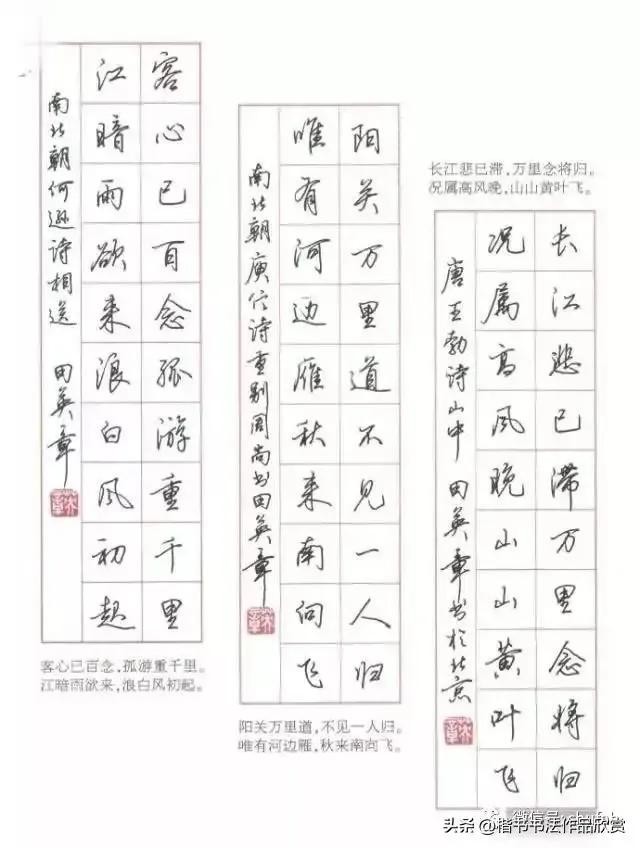 客心已百念孤游重千里
江暗雨欲来浪白风初起
南北朝何逊诗相送 田英章
客心已百念,孤游重千里。
江暗雨欲来,浪白风初起。
阳关万里道不见一人归
唯有河边雁秋来南向飞
南北朝庾信诗重别周尚书田英章
阳关万里道,不见一人归。
唯有河边雁,秋来南向飞。
长江悲已滞,万里念将归。
况属高风晚,山山黄叶飞。
长江悲已滞万里念将归
况属高风晚山山黄叶飞
唐王勃诗山中 田英章书于北京
微信号
头条 @楷书书法作品欣赏